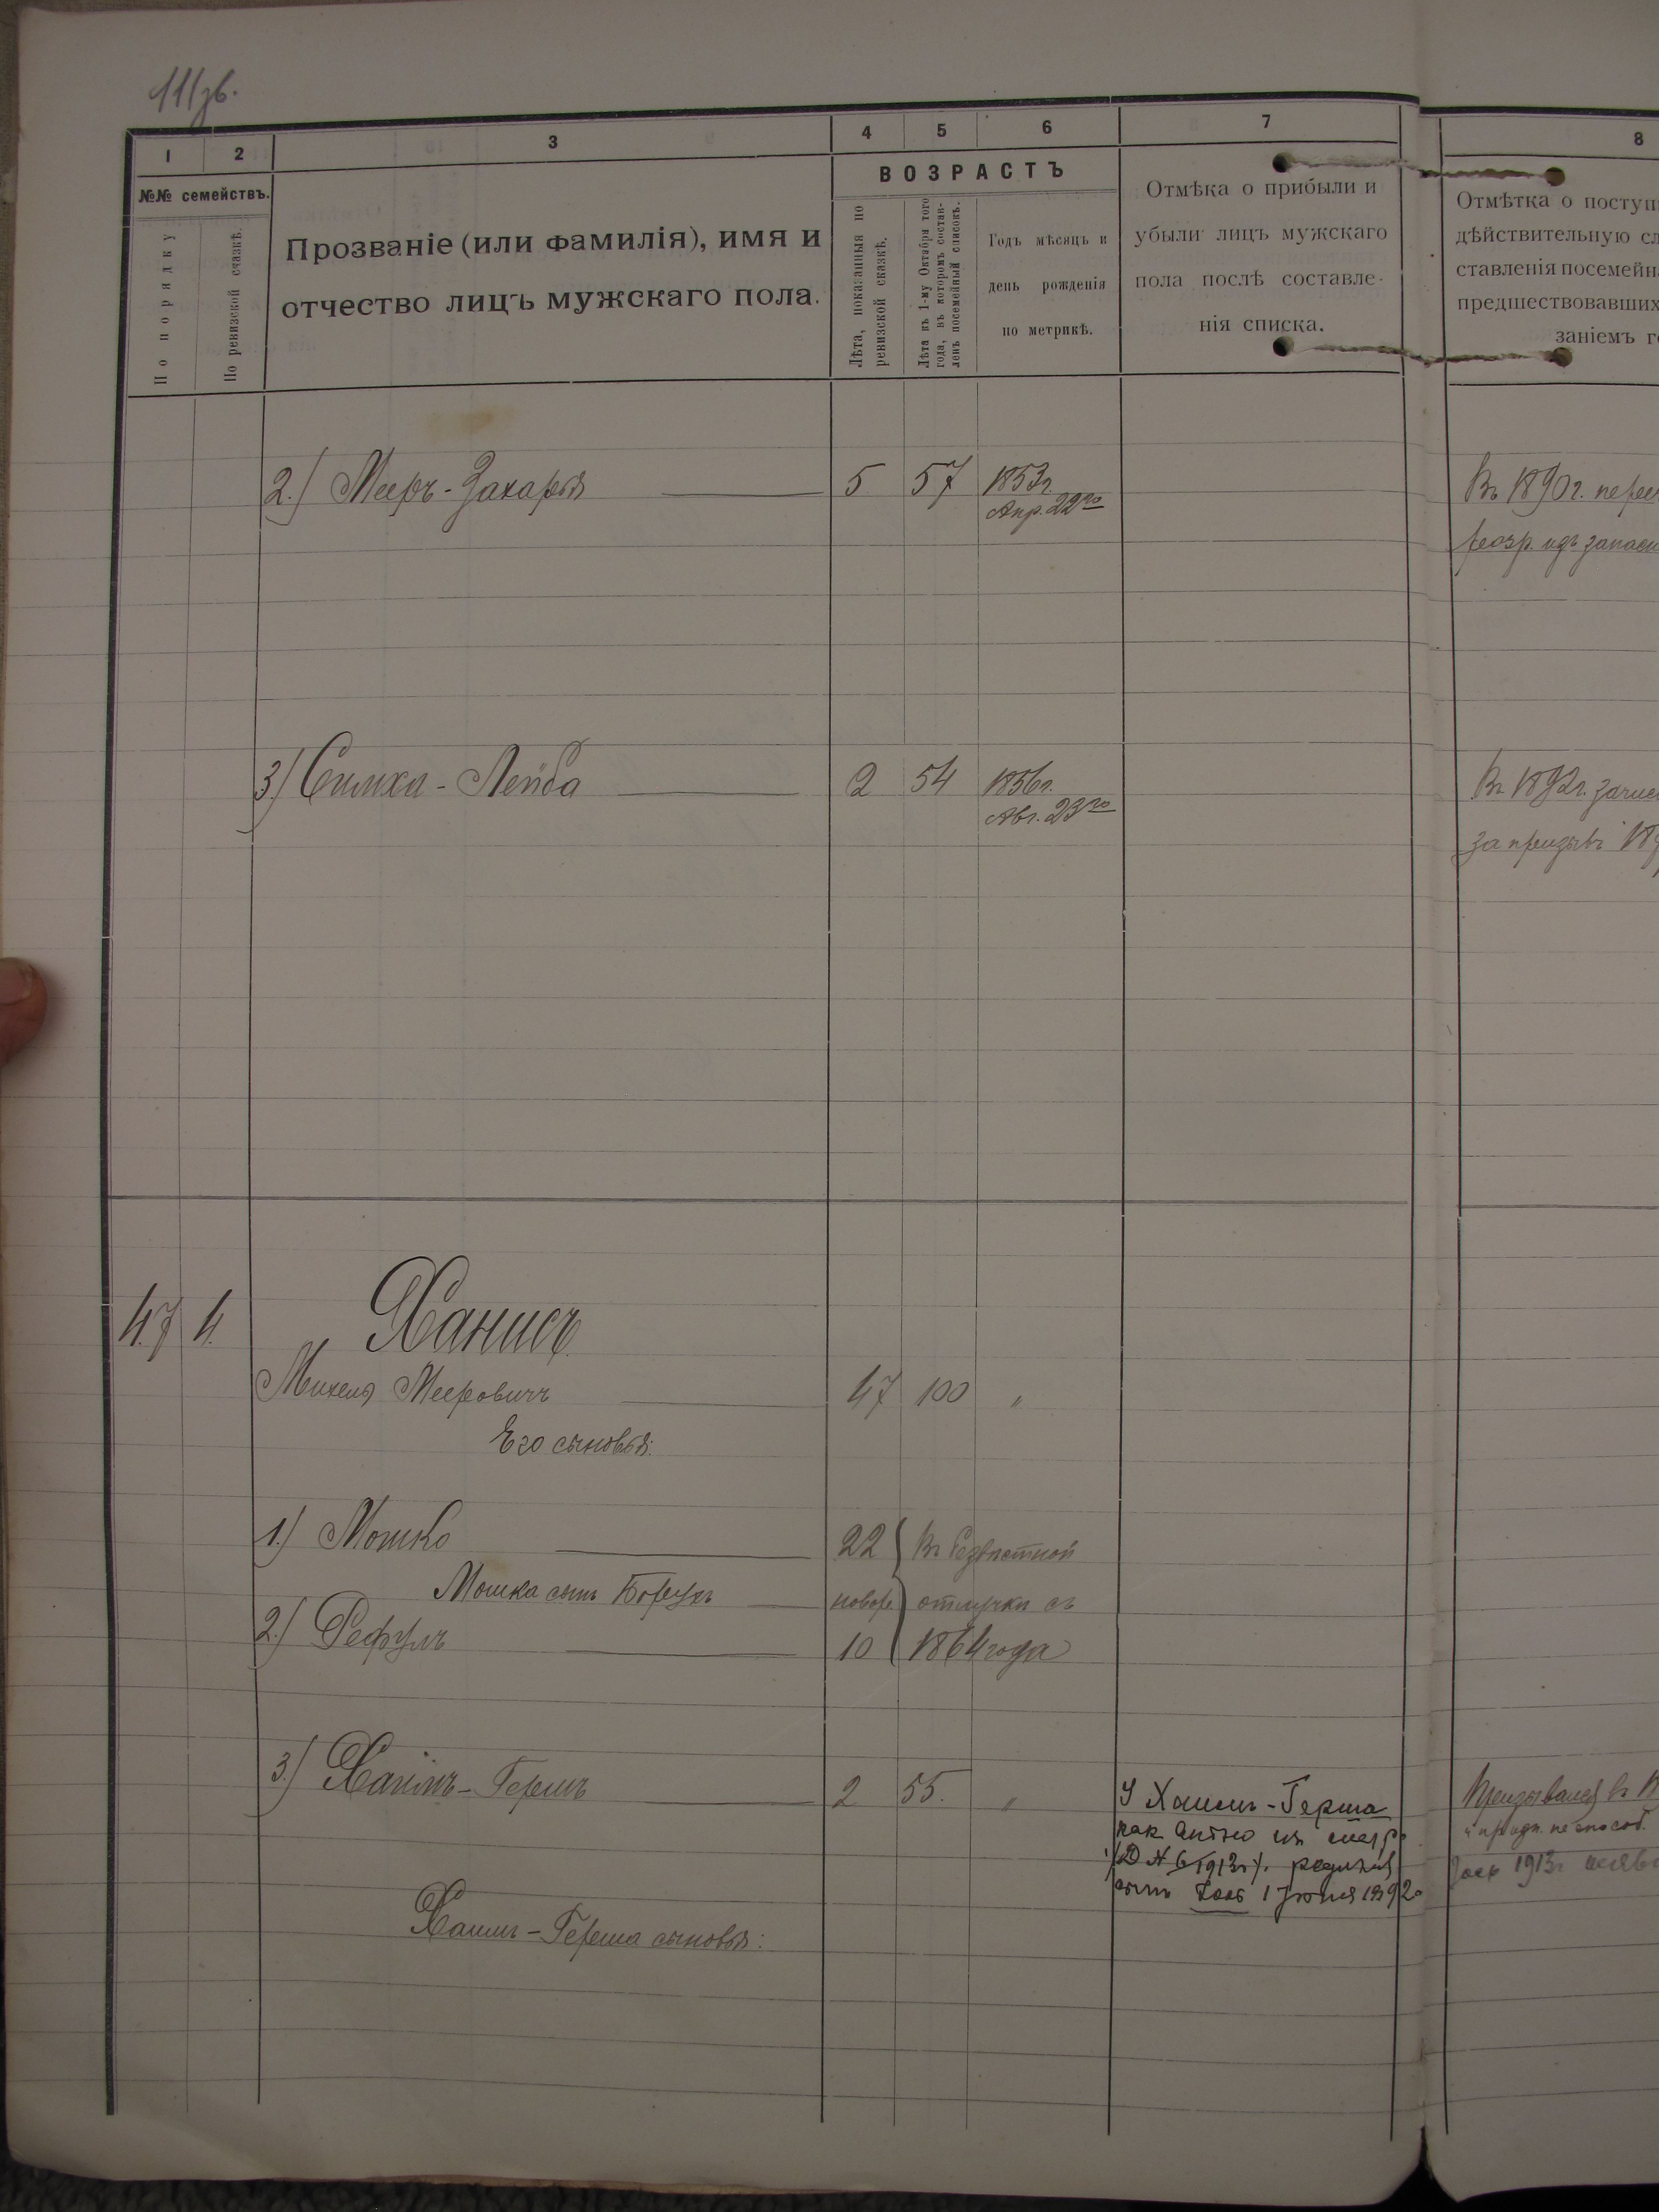 111зв.
1 2 3 4 5 6 7 8
№№ семействъ.
По порядку
По ревизской сказкѣ.
Прозваніе (или фамилія), имя и
отчество лицъ мужскаго пола.
ВОЗРАСТЪ
Лѣта, показанныя по
ревизской сказкѣ.
Лѣта къ 1-му Октября того
года, въ которомъ состав-
ленъ посемейный списокъ.
Годъ мѣсяцъ и
день рожденія
по метрикѣ.
Отмѣка о прибыли и
убыли лицъ мужскаго
пола послѣ составле-
нія списка.
Отмѣтка о поступ
дѣйствительную сл
ставленія посемейн
предшествовавших
заніемъ г
2.) Мееръ-Захарья 5 57 1853г.
Апр. 22го
Въ 1890г.
3) Симха-Лейба 2 54 1856г.
Авг. 23го
Въ 1892г. зачис
за призывъ 189
47 4. Ханисъ
Михель Мееровичъ 47 100 "
Его сыновья:
1.) Мошко 22 Въ безвѣстной
Мошка сынъ Борухъ новор. отлучкѣ съ
2.) Рефулъ 10 1864 года
3.) Хаимъ-Гершъ 2 55. "
У Хаимъ-Герша
как видно из
Д № 6/1913г. родился
сынъ 1 Іюня 1892
Призывался въ
и призн. неспособ.
1913г.
Хаимъ-Герша сыновья: